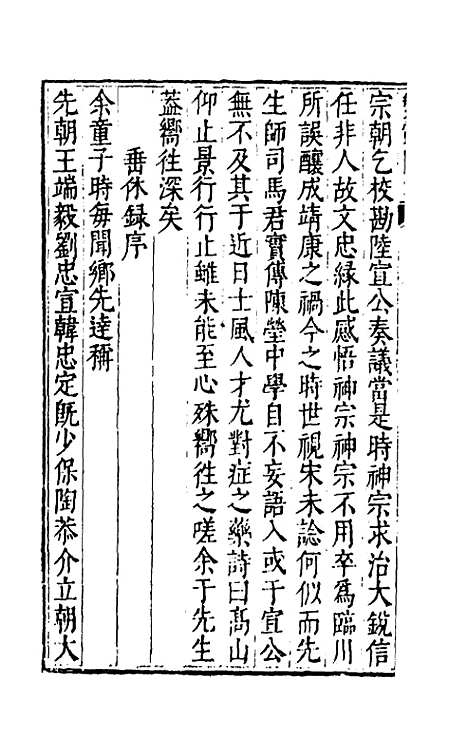 宗朝乞校勘陸宣公奏議當是時神宗求治大銳信
任非人故文忠緣此感悟神宗神宗不用卒爲臨川
所誤釀成靖康之禍今之時世視宋未諗何似而先
生師司馬君實傳陳瑩中學自不妄語入或于宣公
無不及其于近日士風人才尤對症之藥詩曰高山
仰止景行行止雖未能至心殊嚮徃之嗟余于先生
葢嚮徃深矣
垂休録序
余童子時每聞鄉先達稱
先朝王端毅劉忠宣韓忠定旣少保陶恭介立朝大